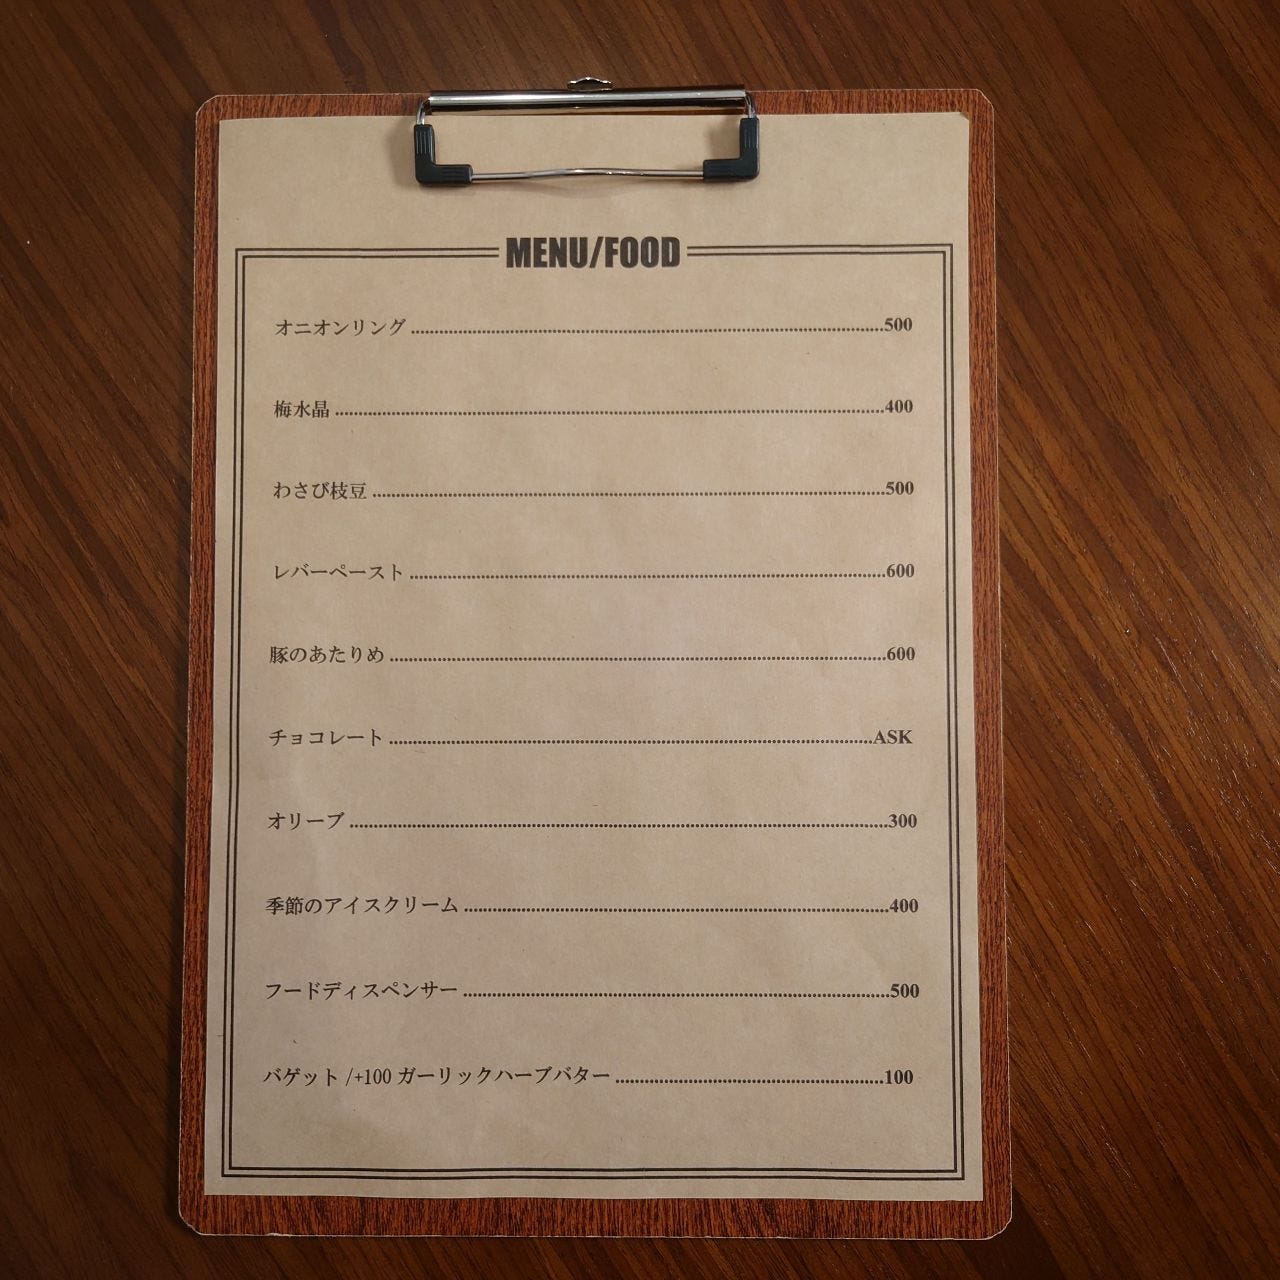 MENU/FOOD
オニオンリング ........ 500
梅水晶 ........ 400
わさび枝豆 ........ 500
レバーペースト ........ 600
豚のあたりめ ........ 600
チョコレート ........ ASK
オリーブ ........ 300
季節のアイスクリーム ........ 400
フードディスペンサー ........ 500
バゲット /+100 ガーリックハーブバター ........ 100